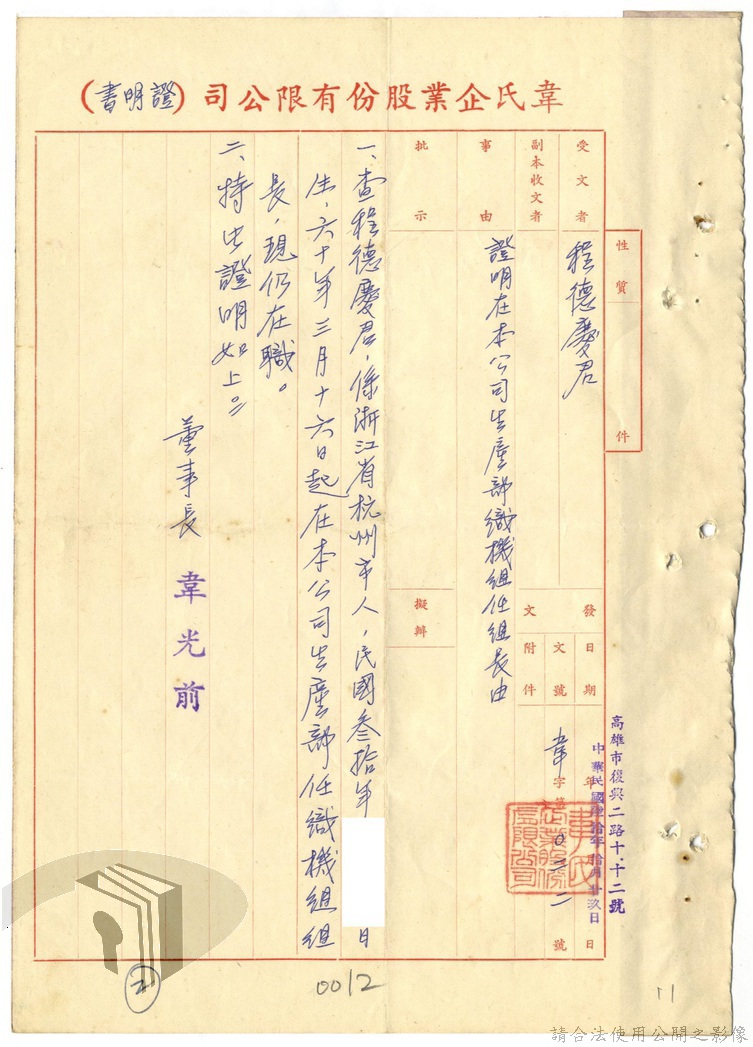 韋氏企業股份有限公司(證明書)
性質 件
受文者 程德慶君
副本收文者
事由 證明在本公司生產部織機組任組長由
批示
擬辦
發文
日期 年 日
文號 韋字 0三二號
附件
高雄市復興二路十、十二號
中華民國肆拾年拾月廿玖日
一、查程德慶君,係浙江省杭州市人,民國叁拾年 日
生,六十年三月十六日起在本公司生產部任織機組組
長,現仍在職。
二、特此證明如上。
董事長 韋光前
2
0012
11
請合法使用公開之影像